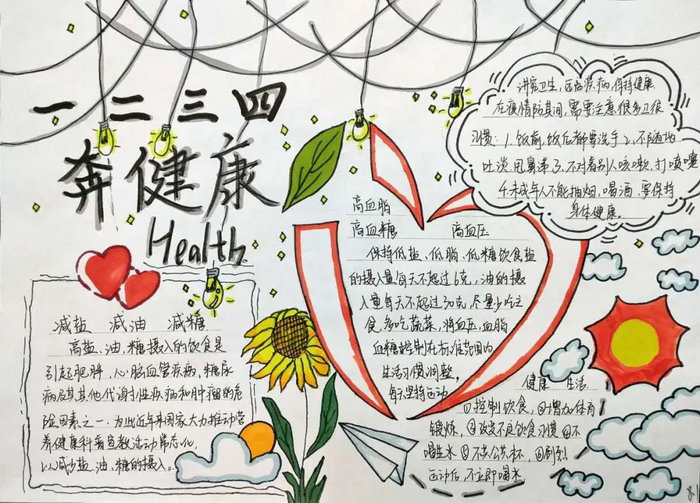 一二三四
奔健康
Health
讲究卫生，远离疾病，保持健康
在疫情防其间，需要注意很多卫很
习惯：1.饭前，饭后都要洗手 2.不随地
吐谈甩鼻涕 3.不对着别人咳嗽，打喷嚏
4.未成年人不能抽烟、喝酒，要保持
身体健康。
高血脂
高血糖 高血压
保持低盐、低脂、低糖饮食盐
的摄入量每天不超过6克，油的摄
入量每天不超过30克，尽量少吃主
食，多吃蔬菜，将血压，血脂
血糖控制在标准范围内
生活习惯调整，
每天坚持运动
减盐 减油 减糖
高盐、油，糖摄入的饮食是
引起肥胖、心脑血管疾病，糖尿
病及其他代谢性疾病和肿瘤的危
险因素之一，为此近年来国家大力推动营
养健康科普宣教活动常态化，
以减少盐、油、糖的摄入。
健康 生活
①控制饮食，②增加体育
锻炼，③改变不良饮食习惯 ④不
喝生水 ⑤不共公共杯，
运动后，不立即喝水